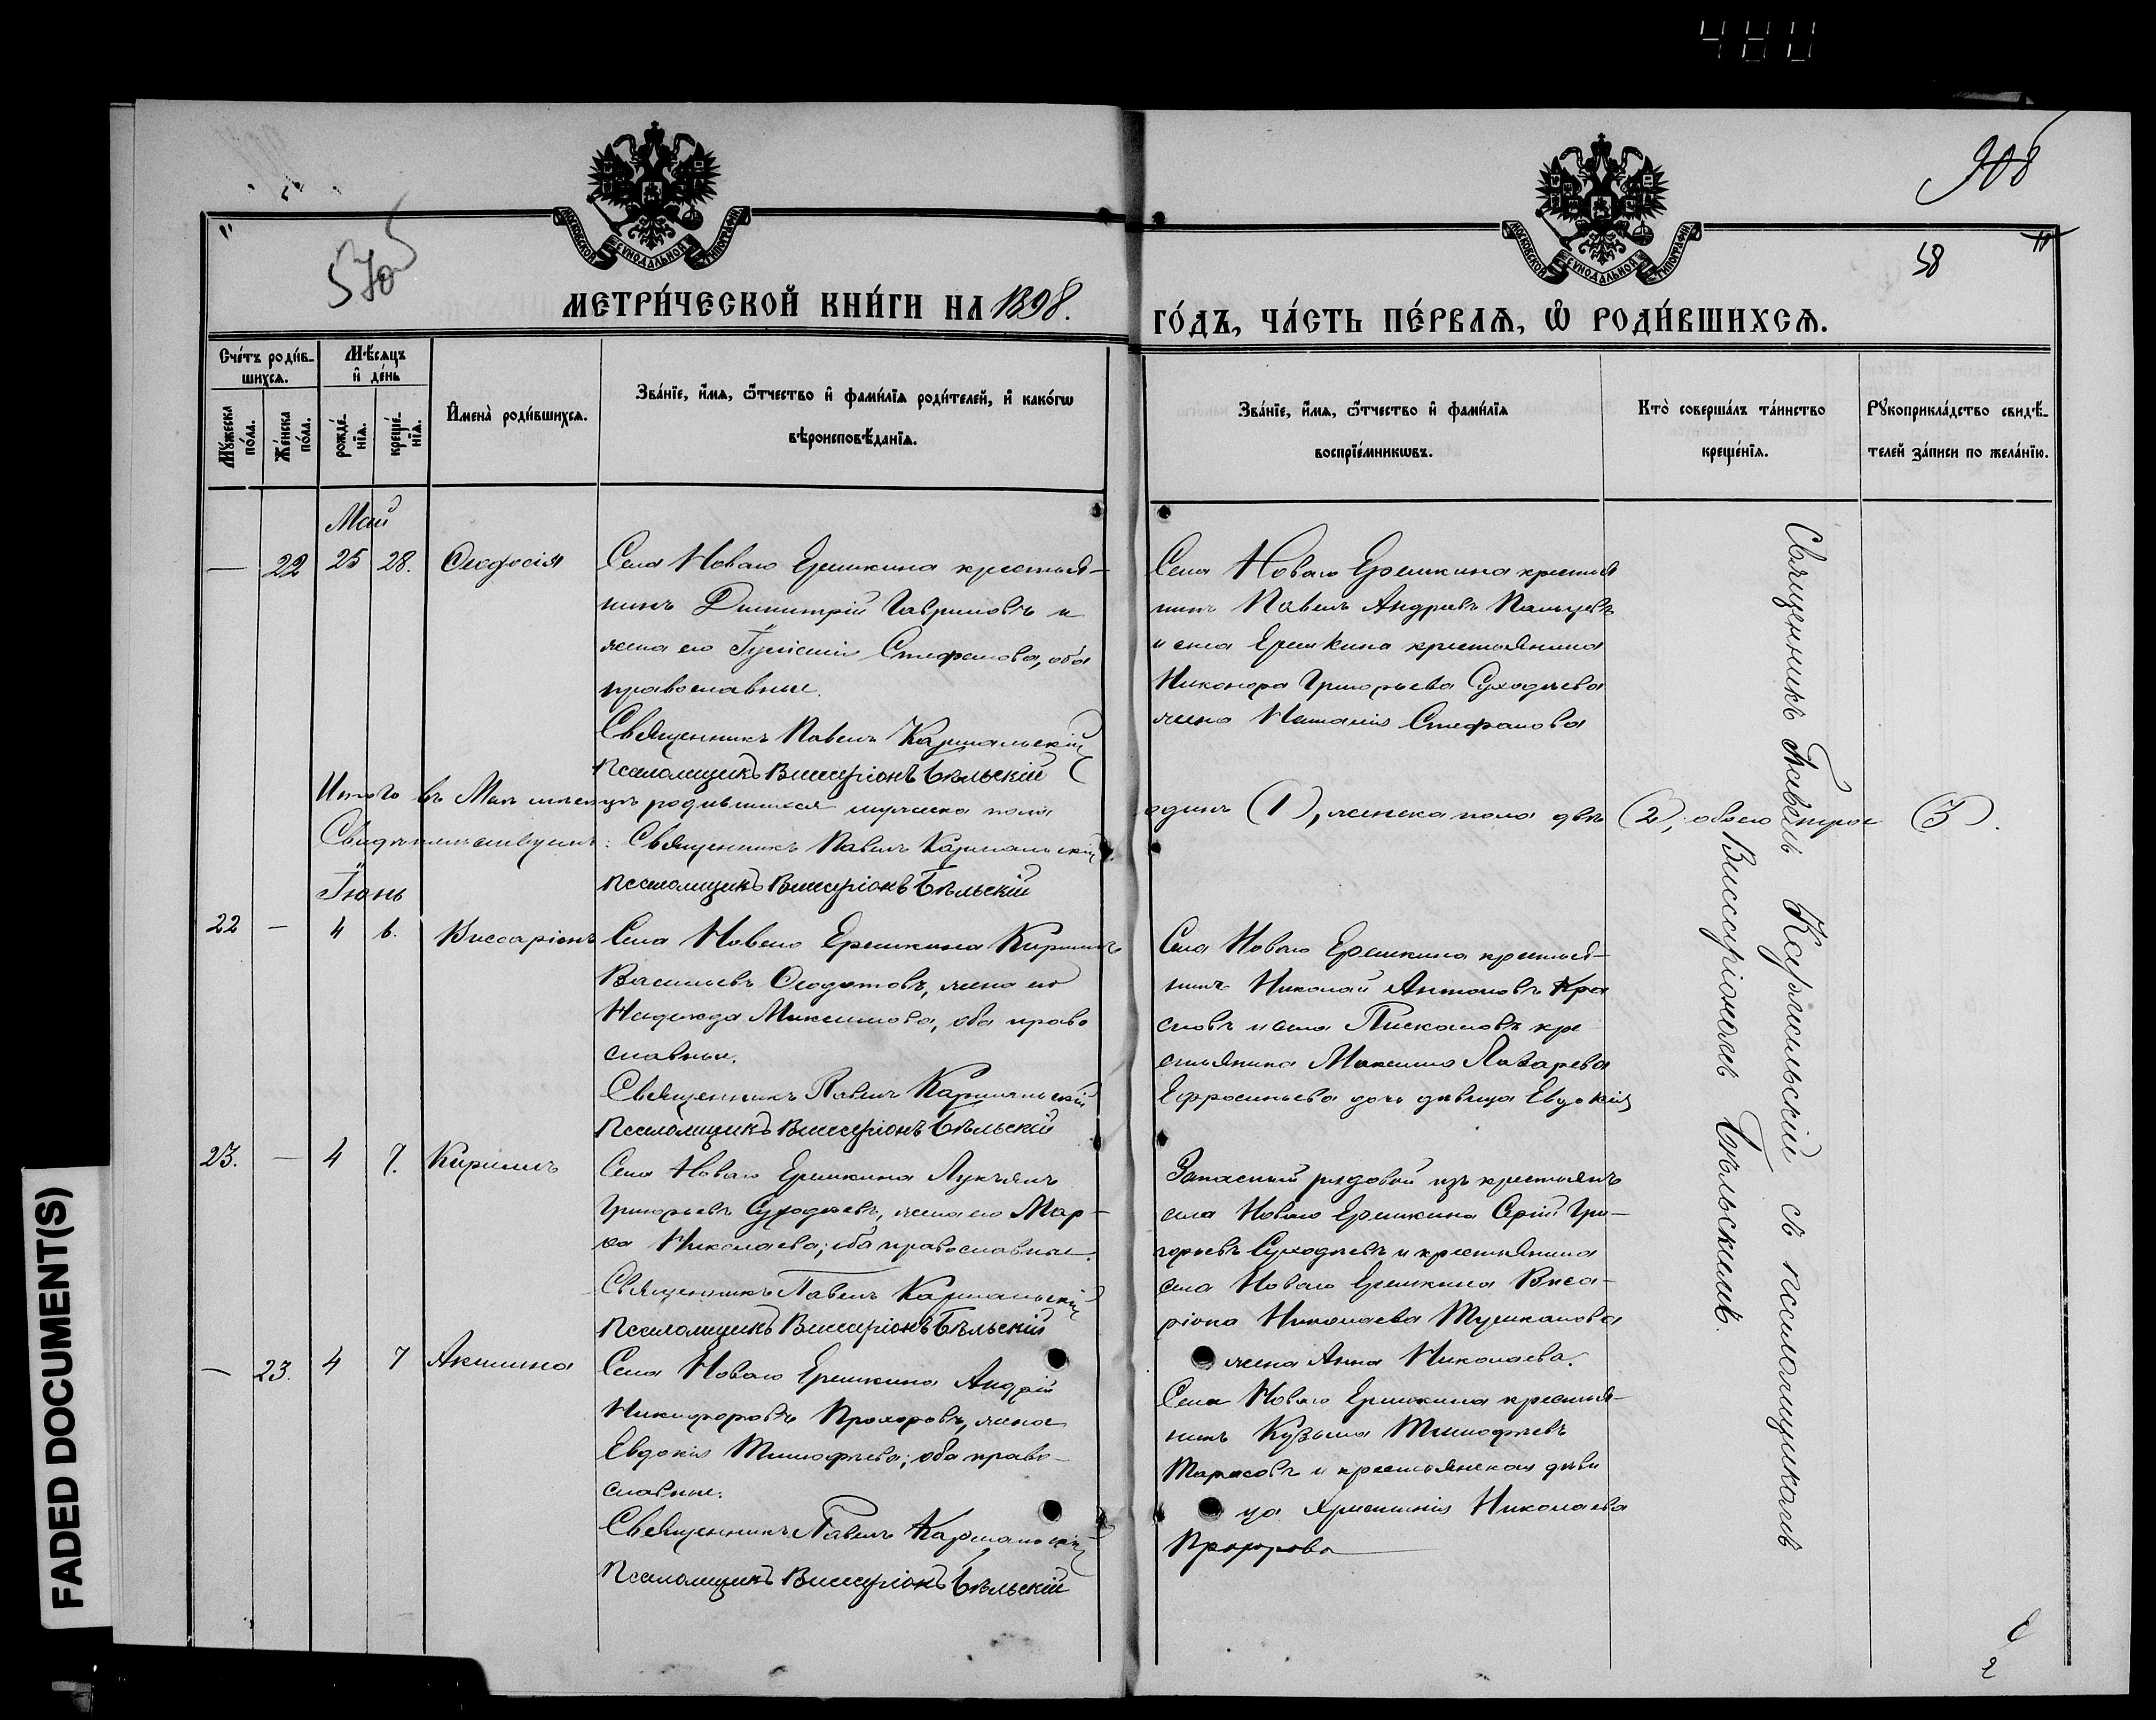 480
908
58
5705
МОСКОВСКОЙ СУНОДАЛЬНОЙ ТИПОГРАФІИ
МОСКОВСКОЙ СУНОДАЛЬНОЙ ТИПОГРАФІИ
МЕТРИ́ЧЕСКОЙ КНИ́ГИ НА 1898.
ГО́ДЪ, ЧА́СТЬ ПЕ́РВАѦ, Ѽ РОДИ́ВШИХСѦ.
Сче́тъ роди́вшихсѧ.
Мꙋ́жеска по́ла.
Же́нска по́ла.
Мѣ́сѧцъ и҆ де́нь
рожде́нїѧ.
креще́нїѧ.
И҆мена̀ роди́вшихсѧ.
Зва́нїе, и҆́мѧ, ѻ҆́тчество и҆ фами́лїѧ роди́телей, и҆ како́гѡ
вѣроисповѣ́данїѧ.
Зва́нїе, и҆́мѧ, ѻ҆́тчество и҆ фами́лїѧ
воспрїе́мникѡвъ.
Кто̀ соверша́лъ та́инство
креще́нїѧ.
Рꙋкоприкла́дство свидѣ́-
телей за́писи по жела́нїю.
Май
— 22 25 28. Ѳеодосія
Села Новаго Ерешкина крестья-
нинъ Димитрій Гавриловъ и
жена его Стефанова, оба
православные.
Священникъ Павелъ Кармальскій
Псаломщикъ Виссаріонъ Бѣльскій
Села Новаго Ерешкина крестья
нинъ Павелъ Андреевъ Пальцевъ
и села Ерешкина крестьянина
Никанора Григорьева Суходѣева
жена Наталія Стефанова
Итого въ Маѣ мѣсяцѣ родившихся мужеска пола одинъ (1), женска пола двѣ (2), обоего трое (3).
Свидѣтельствуемъ: Священникъ Павелъ Кармальскій
Псаломщикъ Виссаріонъ Бѣльскій
Іюнь
22 — 4 6. Виссаріонъ
Села Новаго Ерешкина Кириллъ
Васильевъ Ѳедотовъ, жена его
Надежда Максимова, оба право
славные.
Священникъ Павелъ Кармальскій
Псаломщикъ Виссаріонъ Бѣльскій
Села Новаго Ерешкина крестья-
нинъ Николай Антоновъ Кра
сновъ и села Пискаловъ кре
стьянина Максима Лазарева
Ефросиньева дочь дѣвица Евдокія
23. — 4 7. Кириллъ
Села Новаго Ерешкина Лукьянъ
Григорьевъ Суходѣевъ, жена его Мар-
ѳа Николаева; оба православные.
Священникъ Павелъ Кармальскій
Псаломщикъ Виссаріонъ Бѣльскій
Запасный рядовой изъ крестьянъ
села Новаго Ерешкина Сергій Гри-
горьевъ Суходѣевъ и крестьянина
села Новаго Ерешкина Виса-
ріона Николаева Тушканова
жена Анна Николаева.
— 23. 4 7 Акилина
Села Новаго Ерешкина Андрей
Никифоровъ Прохоровъ, жена
Евдокія Тимофѣева; оба право-
славные.
Священникъ Павелъ Кармальскій
Псаломщикъ Виссаріонъ Бѣльскій
Села Новаго Ерешкина крестья-
нинъ Кузьма Тимофѣевъ
Тарасовъ и крестьянская дѣви
ца Николаева
Прохорова
Священникъ Павелъ Кармальскій съ псаломщикомъ
Виссаріономъ Бѣльскимъ.
FADED DOCUMENT(S)